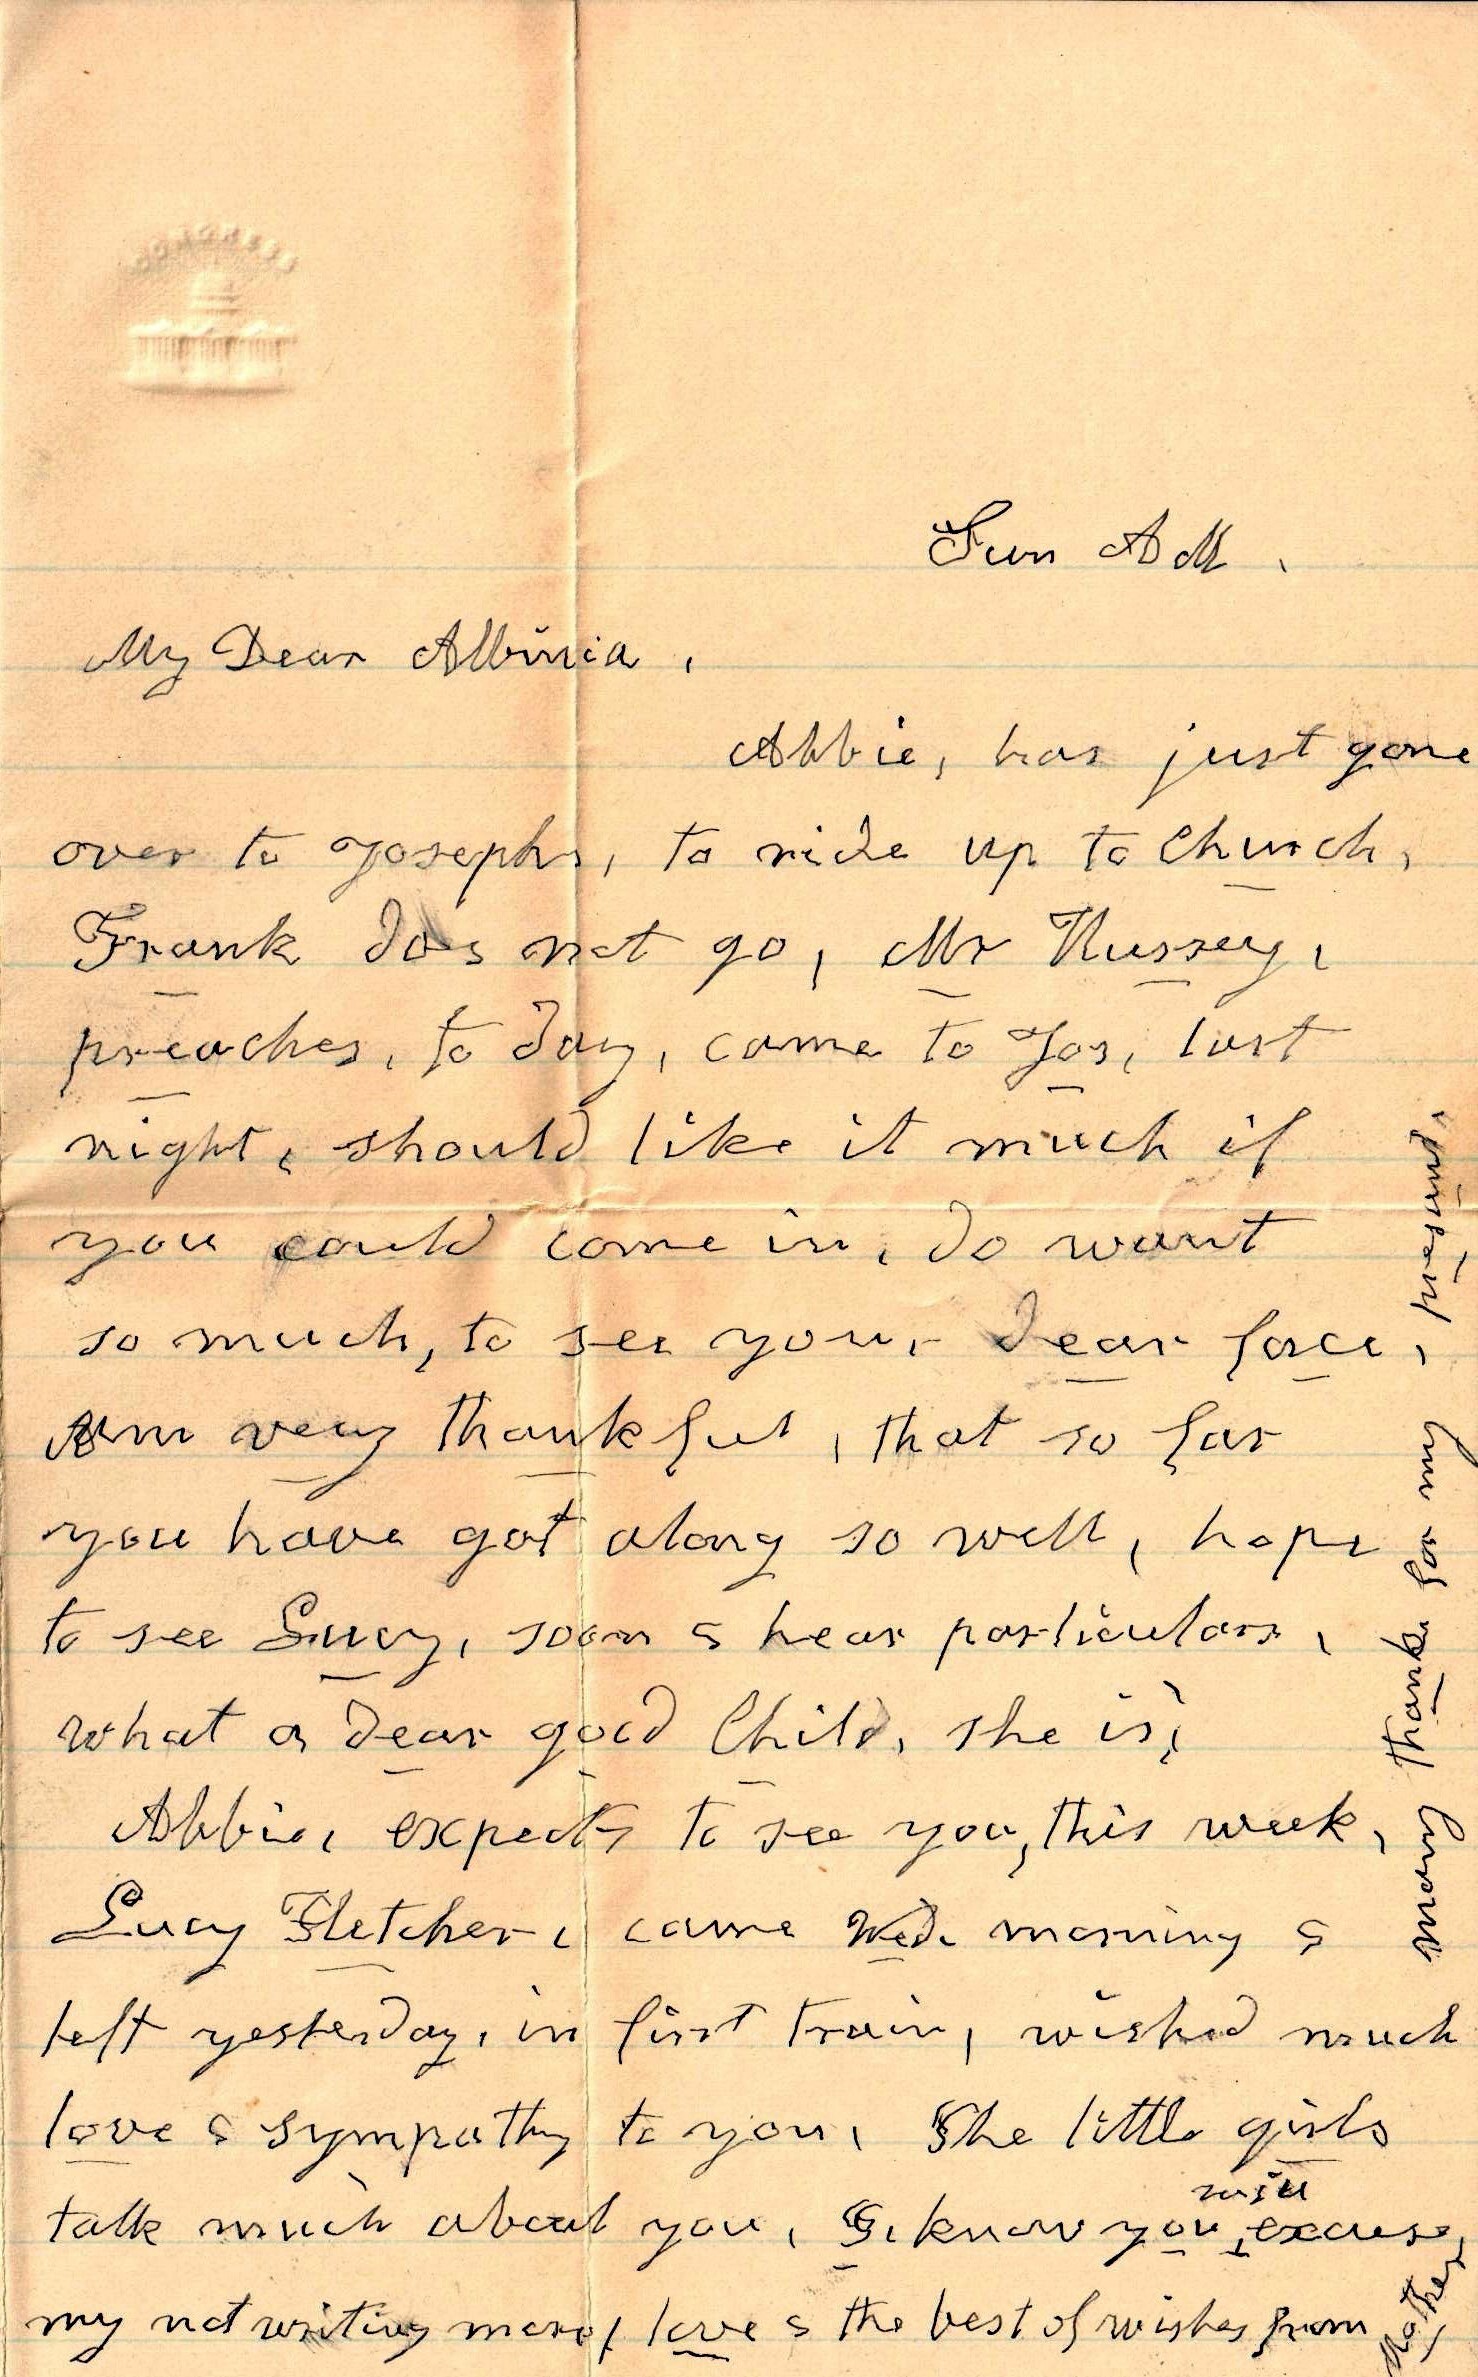 CONGRESS
Sun AM.
My Dear Albinia,
Abbie, has just gone
over to Josephs, to ride up to Church,
Frank does not go, Mr Hussey,
preaches, to day, came to Jos, last
night, should like it much if
you could come in, do want
so much, to see your dear face,
Am very thankful, that so far
you have got along so well, hope
to see Lucy, soon & hear particulars,
what a dear good Child, she is,
Abbie, expects to see you, this week,
Lucy Fletcher, came Wed. morning &
left yesterday, in first train, wished much
love & sympathy to you, The little girls
talk much about you, I, know you will excuse,
my not writing more, love & the best of wishes from
Mother
many thanks for my present.